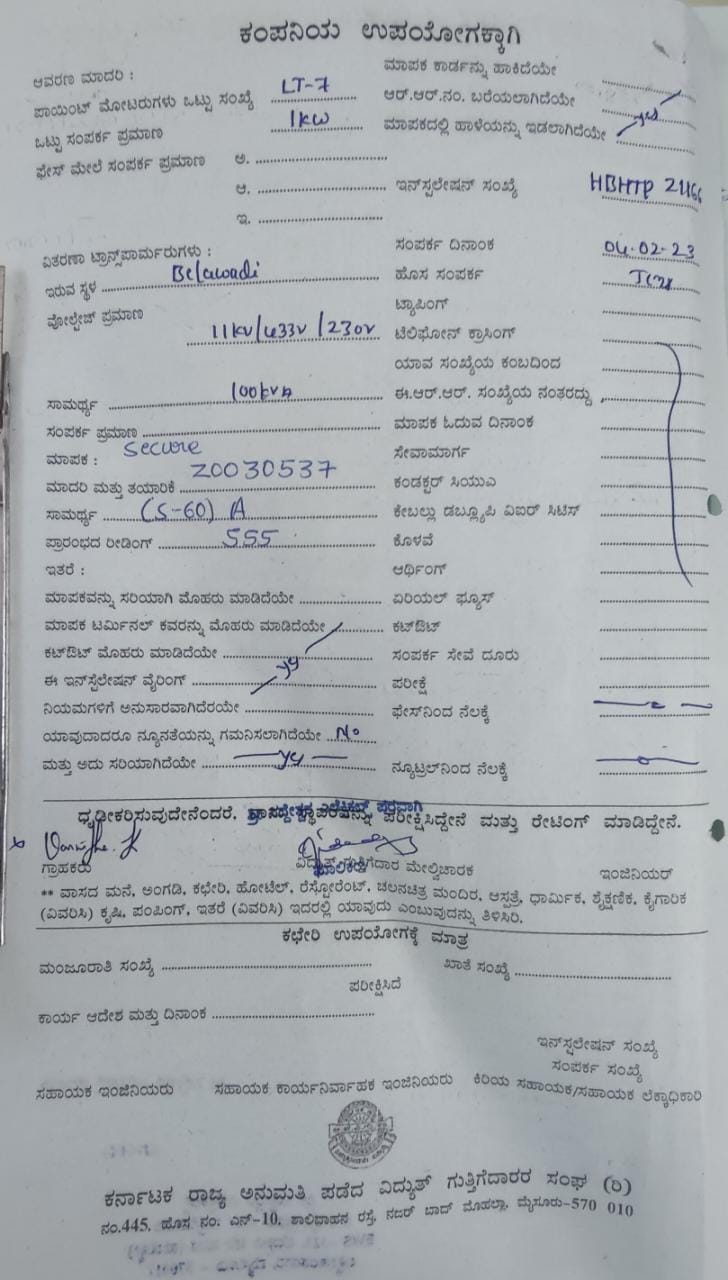 ಕಂಪನಿಯ ಉಪಯೋಗಕ್ಕಾಗಿ
ಆವರಣ ಮಾದರಿ :
ಮಾಪಕ ಕಾರ್ಡನ್ನು ಹಾಕಿದೆಯೇ
ಪಾಯಿಂಟ್ ಮೋಟರುಗಳು ಒಟ್ಟು ಸಂಖ್ಯೆ LT-7
ಆರ್.ಆರ್.ನಂ. ಬರೆಯಲಾಗಿದೆಯೇ
ಒಟ್ಟು ಸಂಪರ್ಕ ಪ್ರಮಾಣ 1kw
ಮಾಪಕದಲ್ಲಿ ಹಾಳೆಯನ್ನು ಇಡಲಾಗಿದೆಯೇ yes
ಫೇಸ್ ಮೇಲೆ ಸಂಪರ್ಕ ಪ್ರಮಾಣ ಅ.
ಆ.
ಇನ್‌ಸ್ಪಲೇಷನ್ ಸಂಖ್ಯೆ HBHTP 21166
ಇ.
ವಿತರಣಾ ಟ್ರಾನ್ಸ್‌ಪಾರ್ಮರುಗಳು :
ಸಂಪರ್ಕ ದಿನಾಂಕ 04-02-23
ಇರುವ ಸ್ಥಳ Belawadi
ಹೊಸ ಸಂಪರ್ಕ
ವೋಲ್ಟೇಜ್ ಪ್ರಮಾಣ
ಟ್ಯಾಪಿಂಗ್
11kv/433v/230v
ಟೆಲಿಫೋನ್ ಕ್ರಾಸಿಂಗ್
ಯಾವ ಸಂಖ್ಯೆಯ ಕಂಬದಿಂದ
ಸಾಮರ್ಥ್ಯ 100kvA
ಈ.ಆರ್.ಆರ್. ಸಂಖ್ಯೆಯ ನಂತರದ್ದು
ಸಂಪರ್ಕ ಪ್ರಮಾಣ
ಮಾಪಕ ಓದುವ ದಿನಾಂಕ
ಮಾಪಕ : secure
ಸೇವಾಮಾರ್ಗ
ಮಾದರಿ ಮತ್ತು ತಯಾರಿಕೆ Z0030537
ಕಂಡಕ್ಟರ್ ಸಿಯುಎ
ಸಾಮರ್ಥ್ಯ (5-60) A
ಕೇಬಲ್ಲು ಡಬ್ಲ್ಯೂಪಿ ವಿಐರ್ ಸಿಟಿಸ್
ಪ್ರಾರಂಭದ ರೀಡಿಂಗ್ 555
ಕೊಳವೆ
ಇತರೆ :
ಆರ್ಥಿಂಗ್
ಮಾಪಕವನ್ನು ಸರಿಯಾಗಿ ಮೊಹರು ಮಾಡಿದೆಯೇ
ಏರಿಯಲ್ ಫ್ಯೂಸ್
ಮಾಪಕ ಟರ್ಮಿನಲ್ ಕವರನ್ನು ಮೊಹರು ಮಾಡಿದೆಯೇ
ಕಟ್‌ಔಟ್
ಕಟ್‌ಔಟ್ ಮೊಹರು ಮಾಡಿದೆಯೇ
ಸಂಪರ್ಕ ಸೇವೆ ದೂರು
ಈ ಇನ್‌ಸ್ಟಲೇಷನ್ ವೈರಿಂಗ್
ಪರೀಕ್ಷೆ
ನಿಯಮಗಳಿಗೆ ಅನುಸಾರವಾಗಿದೆರಯೇ
ಫೇಸ್‌ನಿಂದ ನೆಲಕ್ಕೆ
ಯಾವುದಾದರೂ ನ್ಯೂನತೆಯನ್ನು ಗಮನಿಸಲಾಗಿದೆಯೇ No
ಮತ್ತು ಅದು ಸರಿಯಾಗಿದೆಯೇ
ನ್ಯೂಟ್ರಲ್‌ನಿಂದ ನೆಲಕ್ಕೆ
ಧೃಡೀಕರಿಸುವುದೇನೆಂದರೆ, ಪರೀಕ್ಷಿಸಿದ್ದೇನೆ ಮತ್ತು ರೇಟಿಂಗ್ ಮಾಡಿದ್ದೇನೆ.
ಗ್ರಾಹಕರು
ವಿದ್ಯುತ್ ಗುತ್ತಿಗೆದಾರ ಮೇಲ್ವಿಚಾರಕ
ಇಂಜಿನಿಯರ್
** ವಾಸದ ಮನೆ, ಅಂಗಡಿ, ಕಛೇರಿ, ಹೋಟೆಲ್, ರೆಸ್ಟೋರೆಂಟ್, ಚಲನಚಿತ್ರ ಮಂದಿರ, ಆಸ್ಪತ್ರೆ, ಧಾರ್ಮಿಕ, ಶೈಕ್ಷಣಿಕ, ಕೈಗಾರಿಕ
(ವಿವರಿಸಿ) ಕೃಷಿ, ಪಂಪಿಂಗ್, ಇತರೆ (ವಿವರಿಸಿ) ಇದರಲ್ಲಿ ಯಾವುದು ಎಂಬುವುದನ್ನು ತಿಳಿಸಿರಿ.
ಕಛೇರಿ ಉಪಯೋಗಕ್ಕೆ ಮಾತ್ರ
ಮಂಜೂರಾತಿ ಸಂಖ್ಯೆ
ಖಾತೆ ಸಂಖ್ಯೆ
ಪರೀಕ್ಷಿಸಿದೆ
ಕಾರ್ಯ ಆದೇಶ ಮತ್ತು ದಿನಾಂಕ
ಇನ್‌ಸ್ಟಲೇಷನ್ ಸಂಖ್ಯೆ
ಸಂಪರ್ಕ ಸಂಖ್ಯೆ
ಸಹಾಯಕ ಇಂಜಿನಿಯರು ಸಹಾಯಕ ಕಾರ್ಯನಿರ್ವಾಹಕ ಇಂಜಿನಿಯರು ಕಿರಿಯ ಸಹಾಯಕ/ಸಹಾಯಕ ಲೆಕ್ಕಾಧಿಕಾರಿ
ಕರ್ನಾಟಕ ರಾಜ್ಯ ಅನುಮತಿ ಪಡೆದ ವಿದ್ಯುತ್ ಗುತ್ತಿಗೆದಾರರ ಸಂಘ (ರಿ)
ನಂ.445, ಹೊಸ ನಂ. ಎನ್-10, ಶಾಲಿವಾಹನ ರಸ್ತೆ, ನಜರ್ ಬಾದ್ ಮೊಹಲ್ಲಾ, ಮೈಸೂರು-570 010